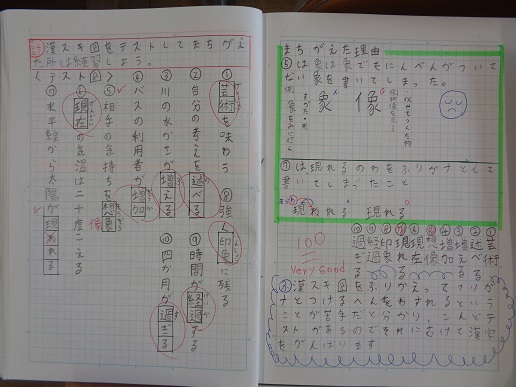 漢スキ図をテストしてまちがえ
た所は練習しよう。
〈テスト図〉
①芸術を味わう
②自分の考えを述べる
③川の水かさが増える
④バスの利用者が増加
⑤相手の気持ちを想象
像
⑥現在の気温は二十度こえる
⑦水平線から太陽が現われる
⑧強く印象に残る
⑨時間が経過する
⑩四か月が過ぎる
まちがえた理由
⑤は象は象でもにんべんがついて
ない象を書いてしまった。
象
像
⑦は現れるのわをふりがなとして
書いてしまったこと
現われる
現れる
①芸術
②述べる
③増える
④増加
⑤想像
⑥現在
⑦現れる
⑧印象
⑨経過
⑩過ぎる
100
very good
漢スキ図をふりかえってふりが
なとつけるへんをわすれるという
ことが苦手だと分かり、こんどテ
ストがあるのでそれにむけて漢字
をがんばります